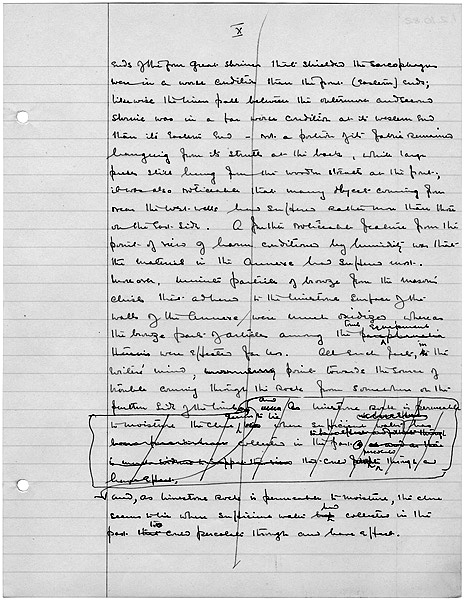 X
ends of the four great shrines that shielded the sarcophagus
were in a worse condition than the front (Eastern) ends;
likewise the linen pall between the outermost and second
shrine was in a far worse condition at its western End
than its Eastern End — not a portion of its fabric remains
hanging from its struts at the back, while large
pieces still hung from the wooden struts at the front;
it was also noticeable that many objects coming from
near the West walls had suffered rather more than those
on the East side. A further noticeable feature from the
point of view of harm conditioned by humidity was that
the material in the Annexe had suffered most.
Moreover, minute particles of bronze from the masons'
chisels that adhered to the limestone surface of the
walls of the Annexe were much oxidized whereas
the bronze part of articles among the equipment
therein were effected far less. All such facts, in the
writer's mind, point towards the source of
trouble coming through the rock from somewhere on the
further side of the
as limestone rock is permeable
to moisture the clue where sufficient water has
collected in the past
could through and
have effect.
and, as limestone rock is permeable to moisture, the clue
seems to lie where sufficient water had collected in the
past to percolate through and have effect.